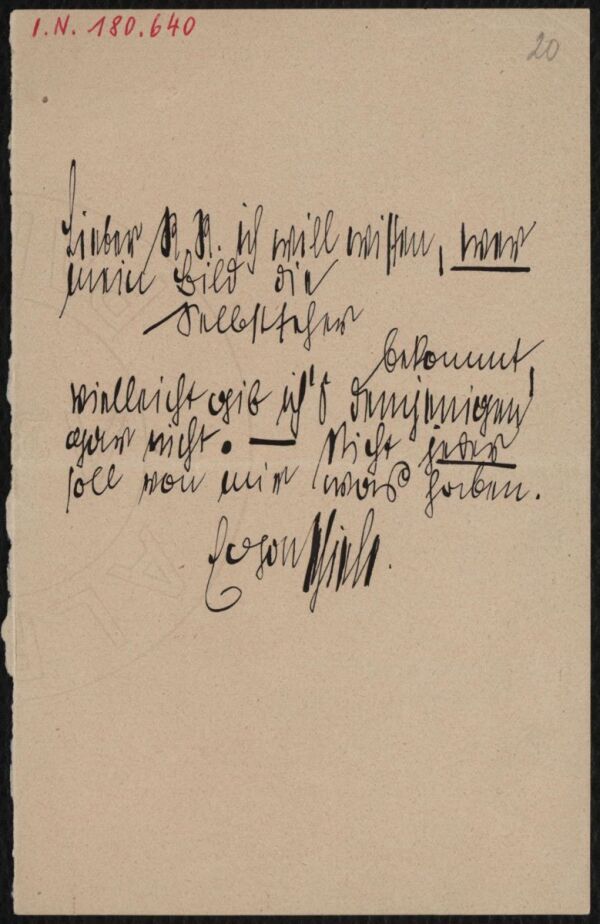 I.N. 180.640
20
Lieber R. R. ich will wissen, wer
mein Bild die
Selbstseher
bekommt,
vielleicht gib ich's demjenigen
gar nicht. — Nicht jeder
soll von mir was haben.
Egon Schiele.